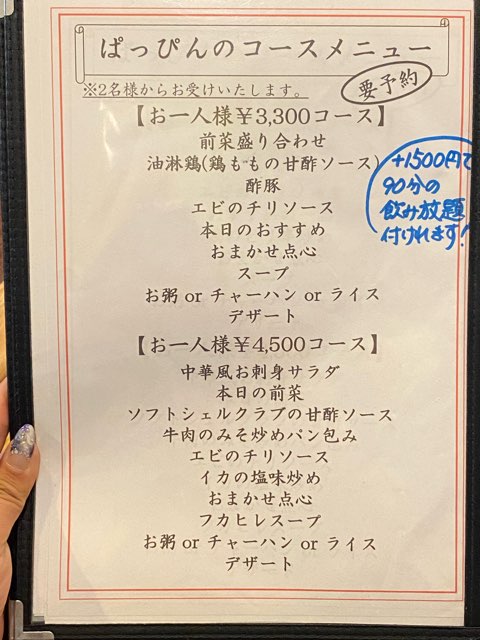 ぱっぴんのコースメニュー
※2名様からお受けいたします。
要予約
【お一人様¥3,300コース】
前菜盛り合わせ
油淋鶏(鶏ももの甘酢ソース)
酢豚
エビのチリソース
本日のおすすめ
おまかせ点心
スープ
お粥 or チャーハン or ライス
デザート
+1500円で
90分の
飲み放題
付けれます!
【お一人様¥4,500コース】
中華風お刺身サラダ
本日の前菜
ソフトシェルクラブの甘酢ソース
牛肉のみそ炒めパン包み
エビのチリソース
イカの塩味炒め
おまかせ点心
フカヒレスープ
お粥 or チャーハン or ライス
デザート